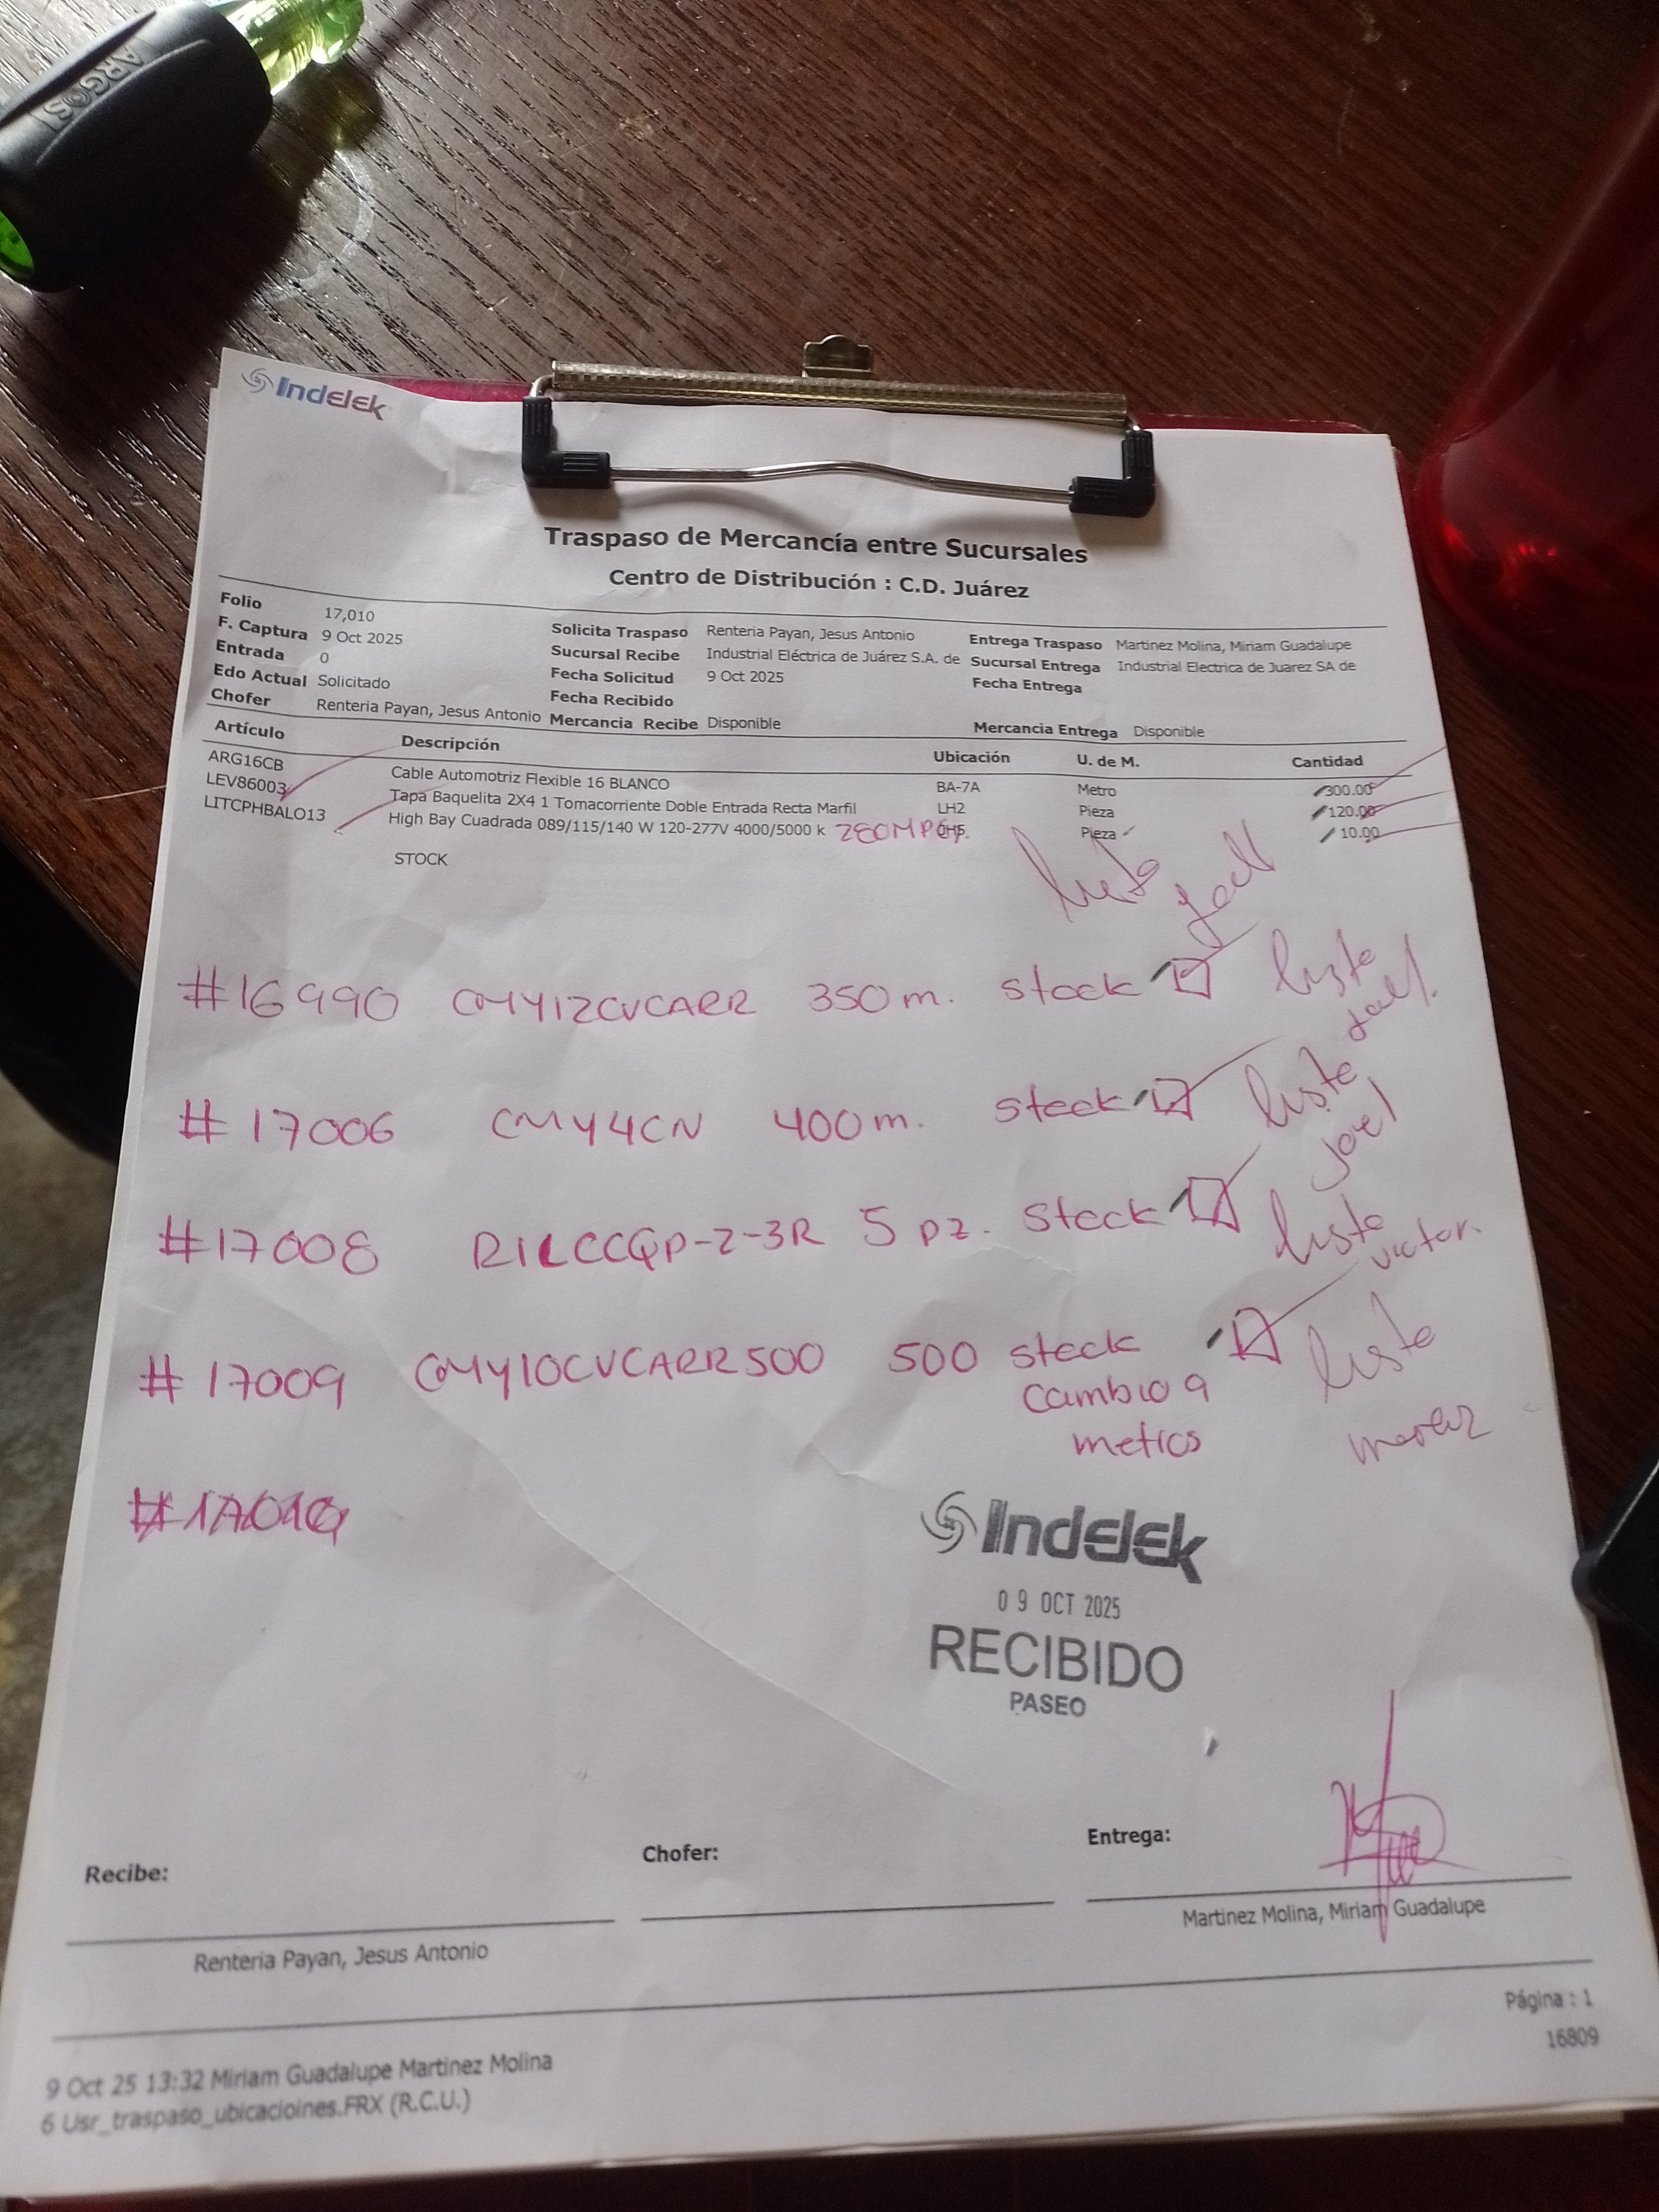 ARGOS
Indelek
Traspaso de Mercancía entre Sucursales
Centro de Distribución : C.D. Juárez
Folio 17,010
F. Captura 9 Oct 2025 Solicita Traspaso Renteria Payan, Jesus Antonio Entrega Traspaso Martinez Molina, Miriam Guadalupe
Entrada 0 Sucursal Recibe Industrial Eléctrica de Juárez S.A. de Sucursal Entrega Industrial Electrica de Juarez SA de
Edo Actual Solicitado Fecha Solicitud 9 Oct 2025 Fecha Entrega
Chofer Renteria Payan, Jesus Antonio Fecha Recibido
Mercancia Recibe Disponible Mercancia Entrega Disponible
Artículo Descripción Ubicación U. de M. Cantidad
ARG16CB Cable Automotriz Flexible 16 BLANCO BA-7A Metro 300.00
LEV86003 Tapa Baquelita 2X4 1 Tomacorriente Doble Entrada Recta Marfil LH2 Pieza 120.00
LITCPHBALO13 High Bay Cuadrada 089/115/140 W 120-277V 4000/5000 k Pieza 10.00
STOCK
listo
#16990 CMY12CVCARR 350 m. stock listo
#17006 CMY4CN 400 m. stock listo Joel
#17008 R1LCCQP-2-3R 5 pz. stock listo victor.
#17009 CMY10CVCARR500 500 stock listo
cambio a
metros
#17010
Indelek
09 OCT 2025
RECIBIDO
PASEO
Recibe: Chofer: Entrega:
Renteria Payan, Jesus Antonio Martinez Molina, Miriam Guadalupe
Página : 1
16809
9 Oct 25 13:32 Miriam Guadalupe Martinez Molina
6 Usr_traspaso_ubicacioines.FRX (R.C.U.)